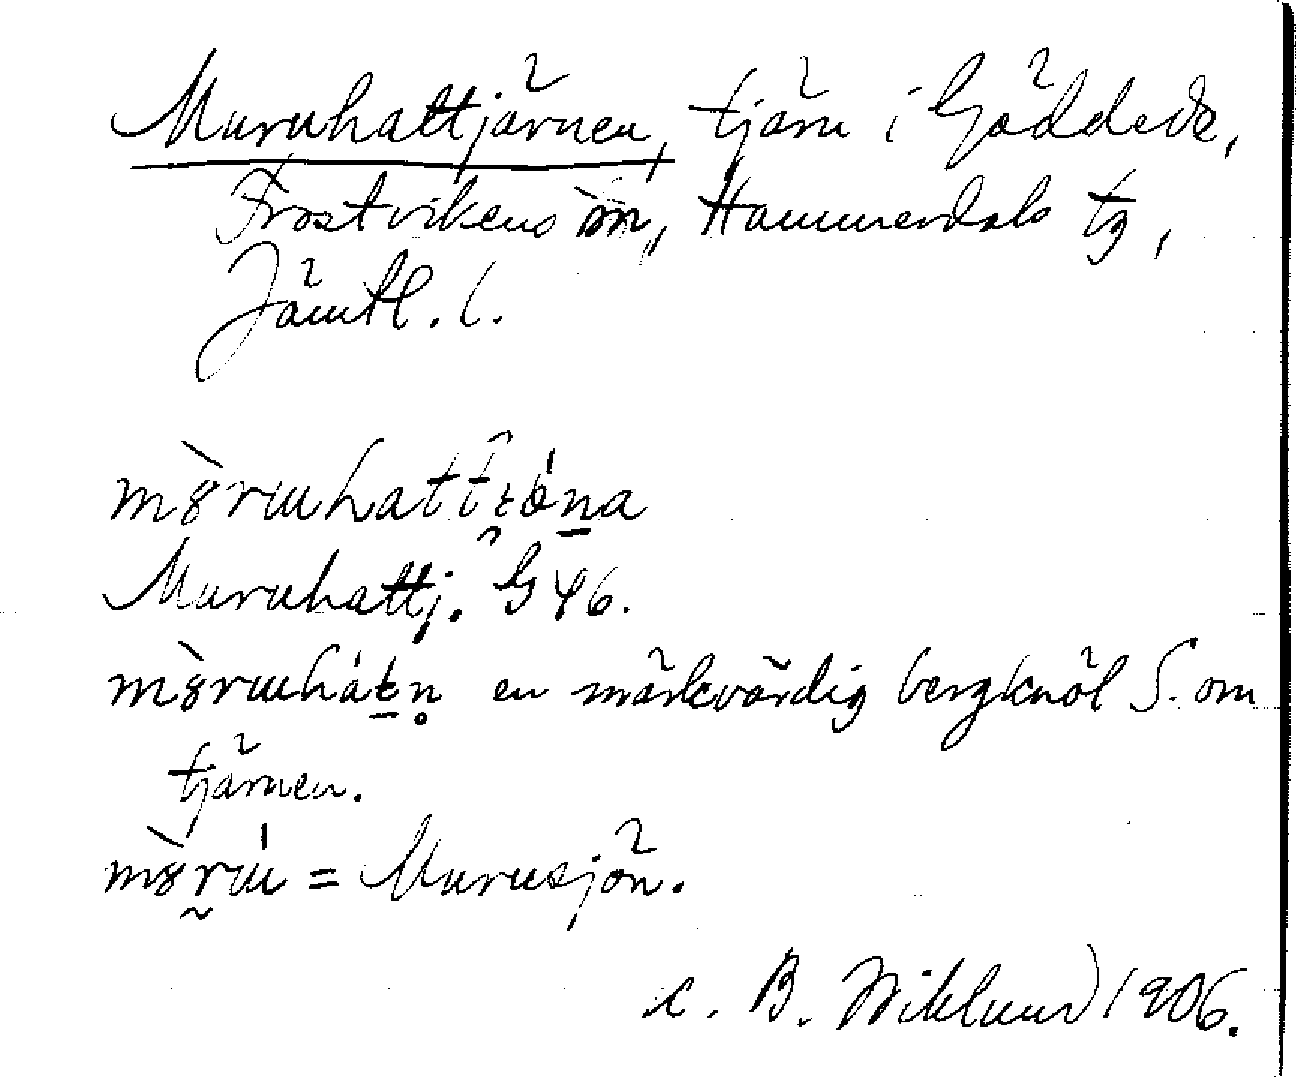 Muruhattjärnen, tjärn i Gäddede,
Frostvikens sn, Hammerdals tg,
Jämtl. l.
Muruhattj. G 46.
en märkvärdig bergknöl S. om
tjärnen.
= Murusjön.
K. B. Wiklund 1906.